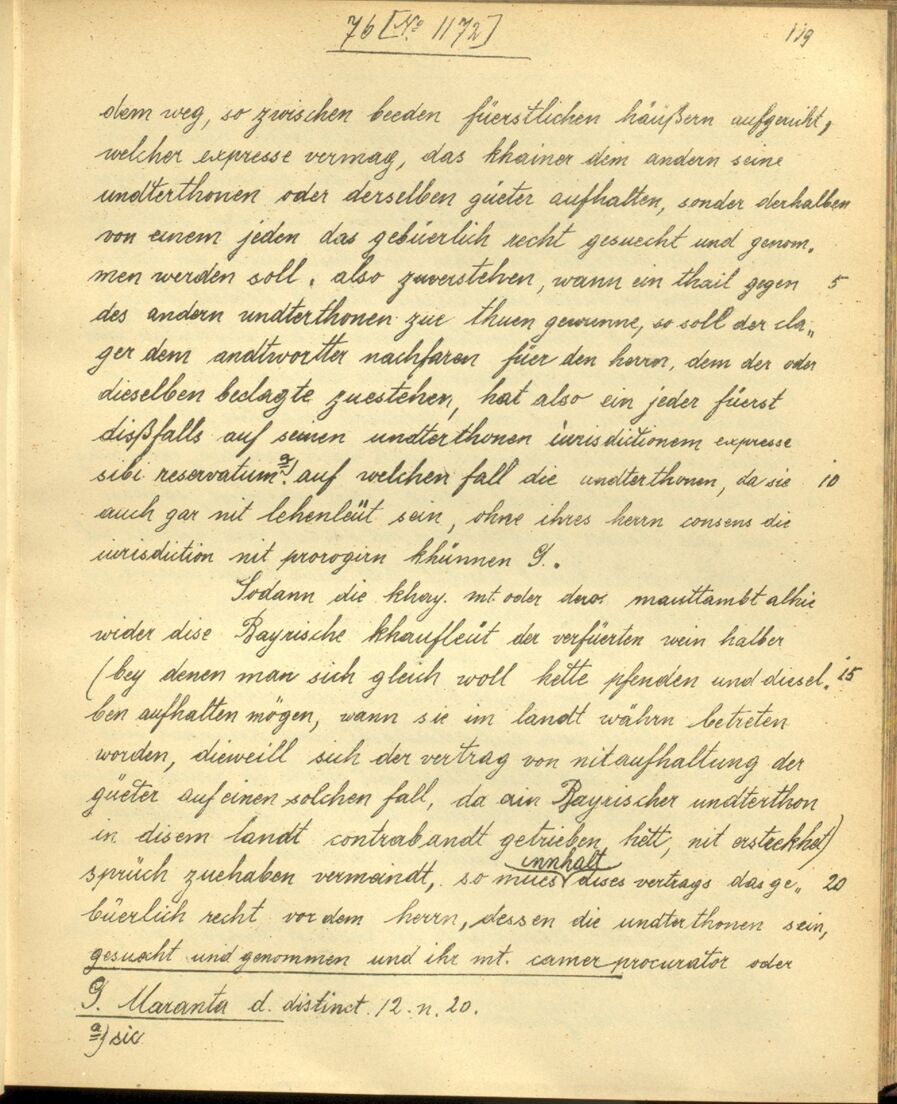 76 [No 1172]
119
dem weg, so zwischen beeden füerstlichen häußern aufgericht,
welcher expresse vermag, das khainer dem andern seine
undterthonen oder derselben güeter aufhalten, sonder derhalben
von einem jeden das gebüerlich recht gesuecht und genom„
men werden soll. also zuverstehen, wann ein thail gegen 5
des andern undterthonen zue thuen gewunne, so soll der cla„
ger dem andtwortter nachfaren füer den herrn, dem der oder
dieselben beclagte zuestehen, hat also ein jeder füerst
disßfalls auf seinen undterthonen iurisdictionem expresse
sibi reservatum a) auf welchen fall die undterthonen, da sie 10
auch gar nit lehenleüt sein, ohne ihres herrn consens die
iurisdiction nit prorogirn khünnen G.
Sodann die khay. mt. oder deros mauttambt alhie
wider dise Bayrische khaufleüt der verfüerten wein halber
(bey denen man sich gleich woll hette pfenden und diesel„ 15
ben aufhalten mögen, wann sie im landt währn betreten
worden, dieweill sich der vertrag von nitaufhaltung der
güeter auf einen solchen fall, da ain Bayrischer undterthon
in disem landt contrabandt getrieben hett, nit ersteckhet)
sprüch zuehaben vermaindt, so mues innhalt dises vertrags das ge„ 20
büerlich recht vor dem herrn, dessen die undterthonen sein,
gesuecht und genommen und ihr mt. camerprocurator oder
G. Maranta d. distinct. 12. n. 20.
a) sic